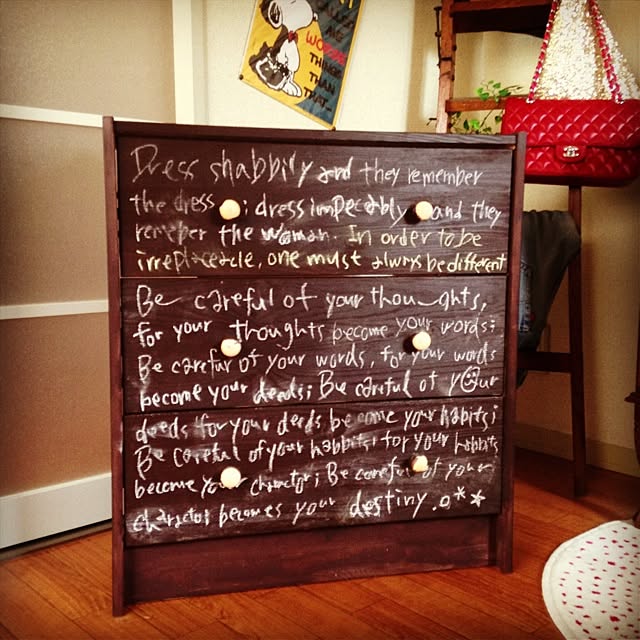 WORSE
THINGS
THAN
THAT...
Dress shabbily and they remember
the dress; dress impecably and they
remeber the woman. In order to be
irreplaceacle, one must always be different
Be careful of your thoughts,
for your thoughts become your words;
Be careful of your words, for your words
become your deeds; Be careful of your
deeds for your deeds become your habits;
Be careful of your habbits; for your habbits
become your charactor; Be careful of your
charactor becomes your destiny.o**